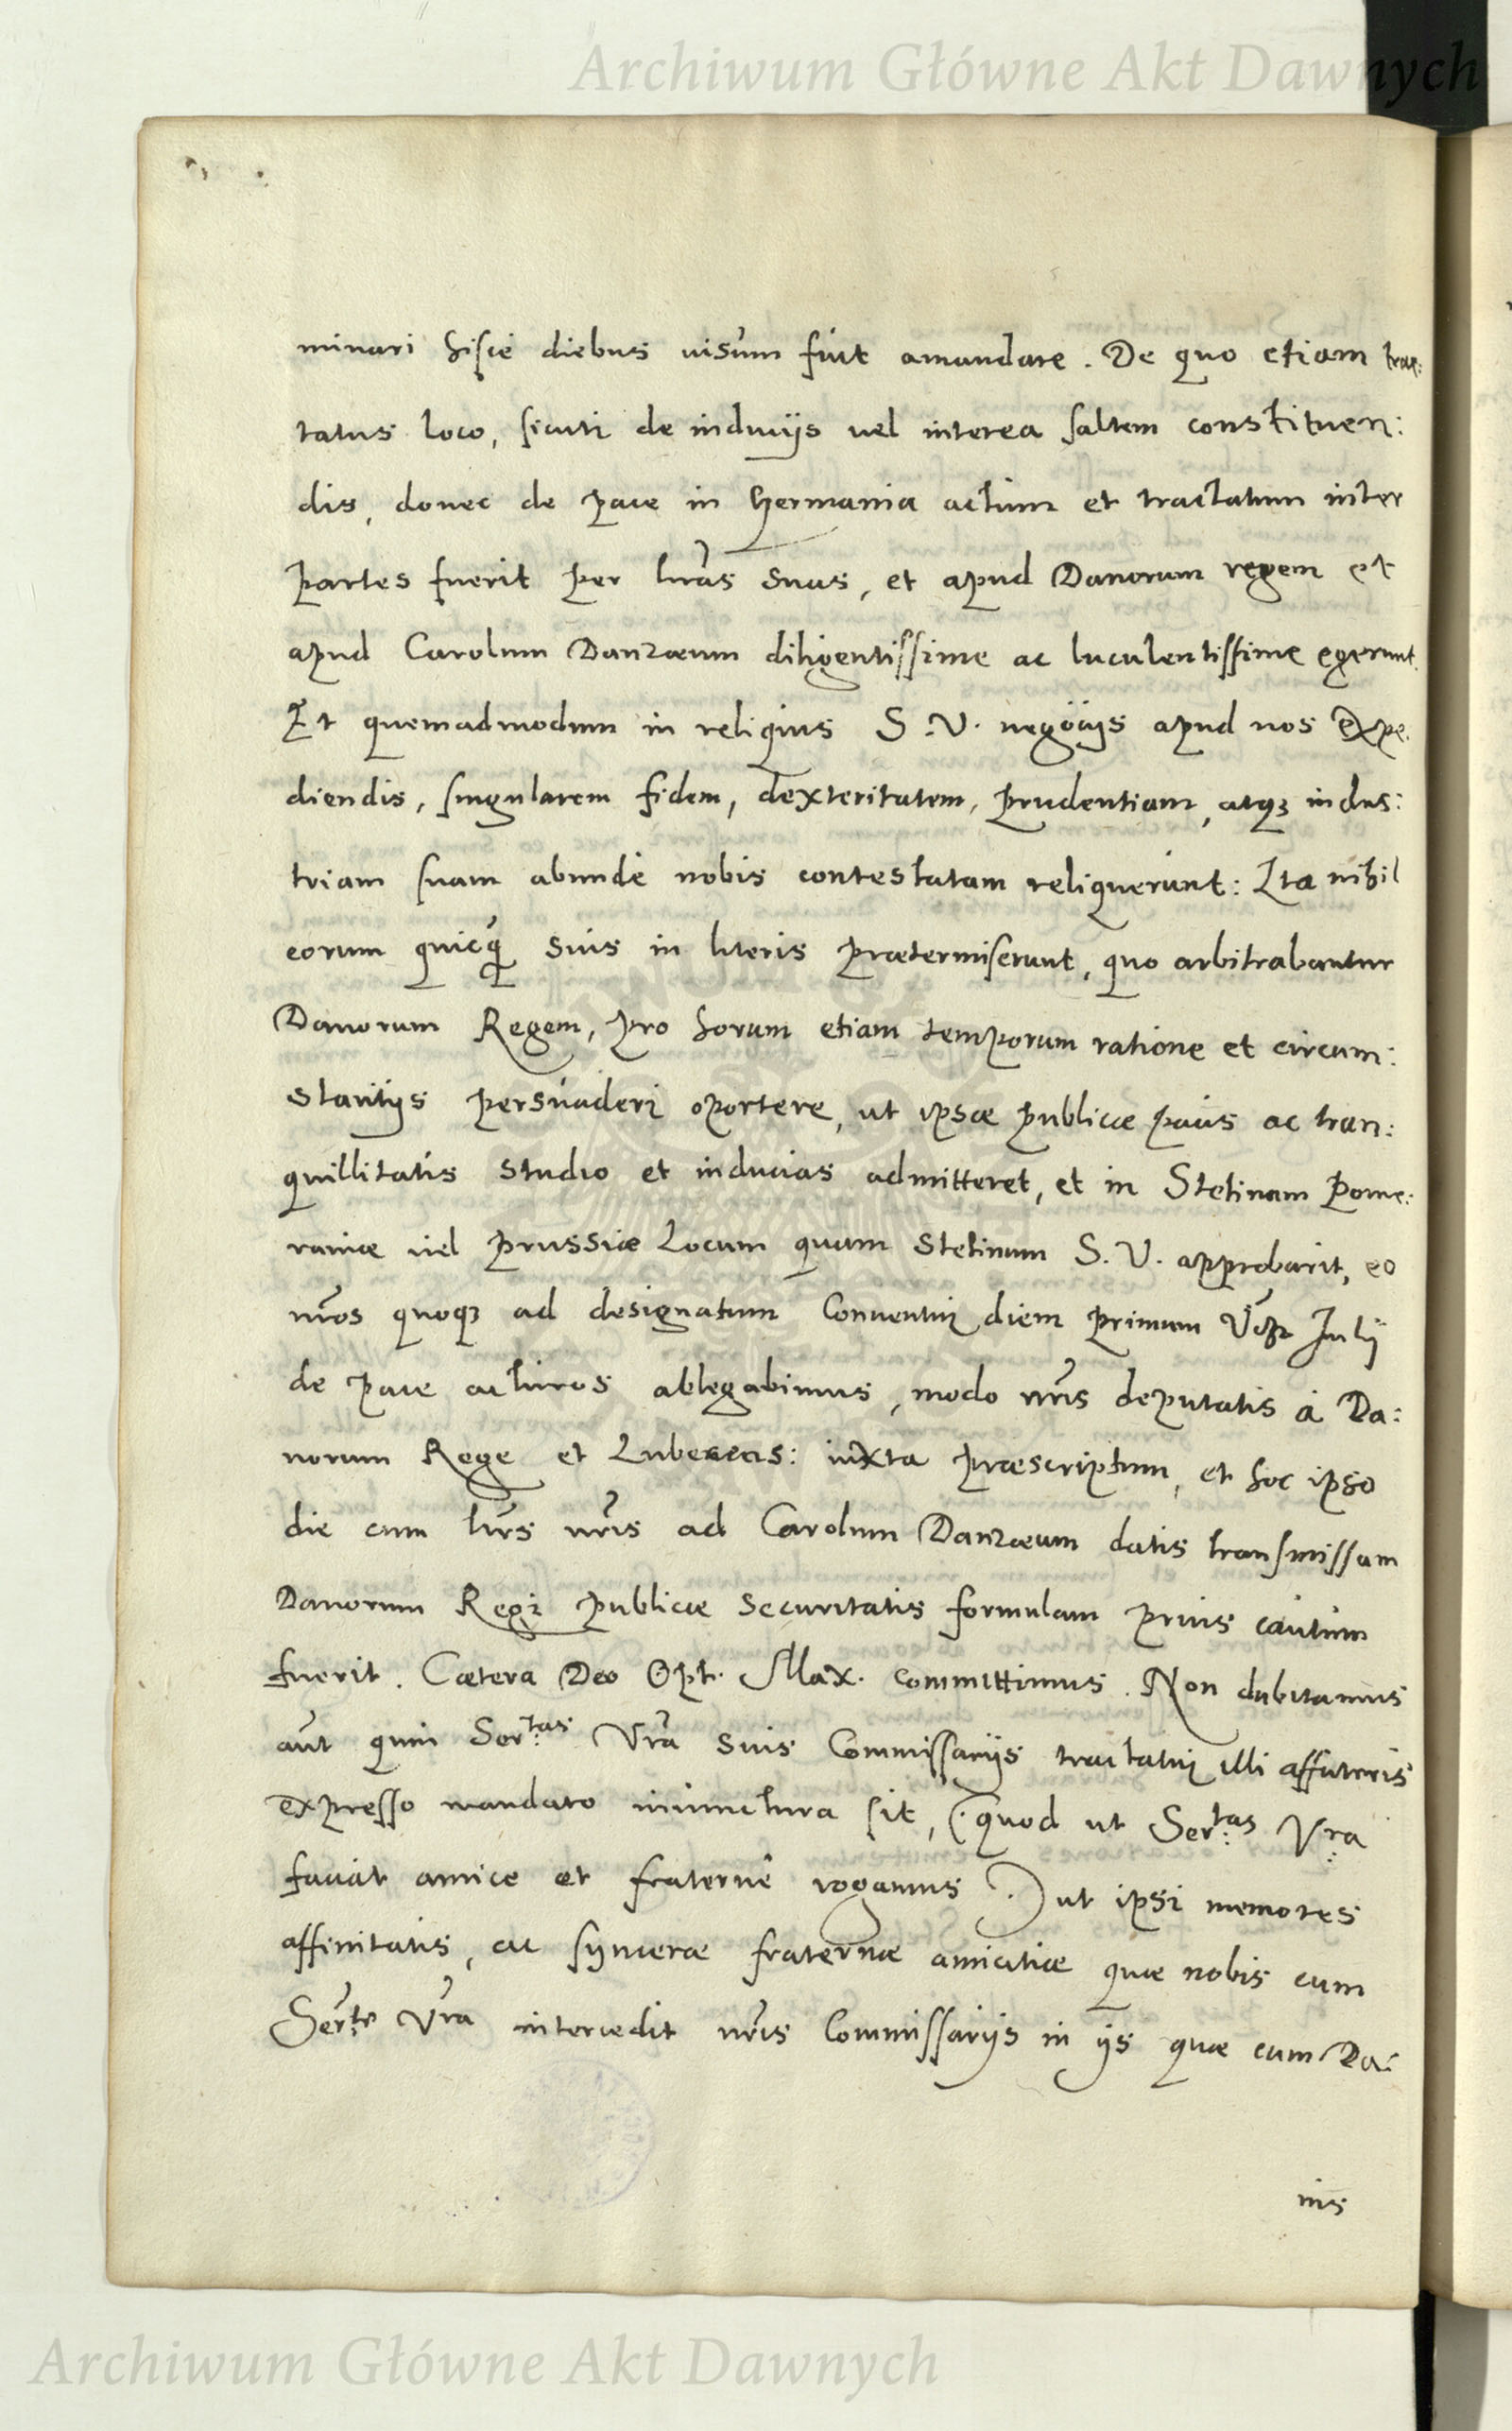 Archiwum Główne Akt Dawnych
minari hisce diebus visum fuit amandare. De quo etiam trac:
tatus loco, sicuti de inducijs vel interea saltem constituen:
dis, donec de pace in Germania actum et tractatum inter
partes fuerit per lrãs suas, et apud Danorum regem et
apud Carolum Danzæum diligentissime ac luculentissime egerunt.
Et quemadmodum in reliquis S. V. negocijs apud nos expe:
diendis, singularem fidem, dexteritatem, prudentiam, atqꝫ indus:
triam suam abundè nobis contestatam reliquerunt: Ita nihil
eorum quicqͣ suis in literis prætermiserunt, quo arbitrabantur
Danorum Regem, pro horum etiam temporum ratione et circum:
stantijs persuaderi oportere, ut ipse publicæ pacis ac tran:
quillitatis studio et inducias admitteret, et in Stetinam Pome:
raniæ vel Prussiæ Locum quum Stetinum S. V. approbarit, eo
nr̃os quoqꝫ ad designatum Conventui diem primum Julij
de pace acturos ablegabimus, modo nr̃is deputatis à Da:
norum Rege et Lubecens: iuxta præscriptum, et hoc ipso
die cum lrĩs nr̃is ad Carolum Danzæum datis transmissam
Danorum Regi publicæ securitatis formulam prius cautum
fuerit. Cætera Deo Opt. Max. committimus. Non dubitamus
aũt quin Ser:tas Vrã suis Commissarijs tractatui illi affuturis
expresso mandato iniunctura sit, (:quod ut Ser:tas Vra
faciat amice et fraternè rogamus:) ut ipsi memores
affinitatis, ac synceræ fraternæ amicitiæ quæ nobis cum
Ser:te Vrã intercedit nr̃is Commissarijs in ijs quæ cum Da:
nis
Archiwum Główne Akt Dawnych